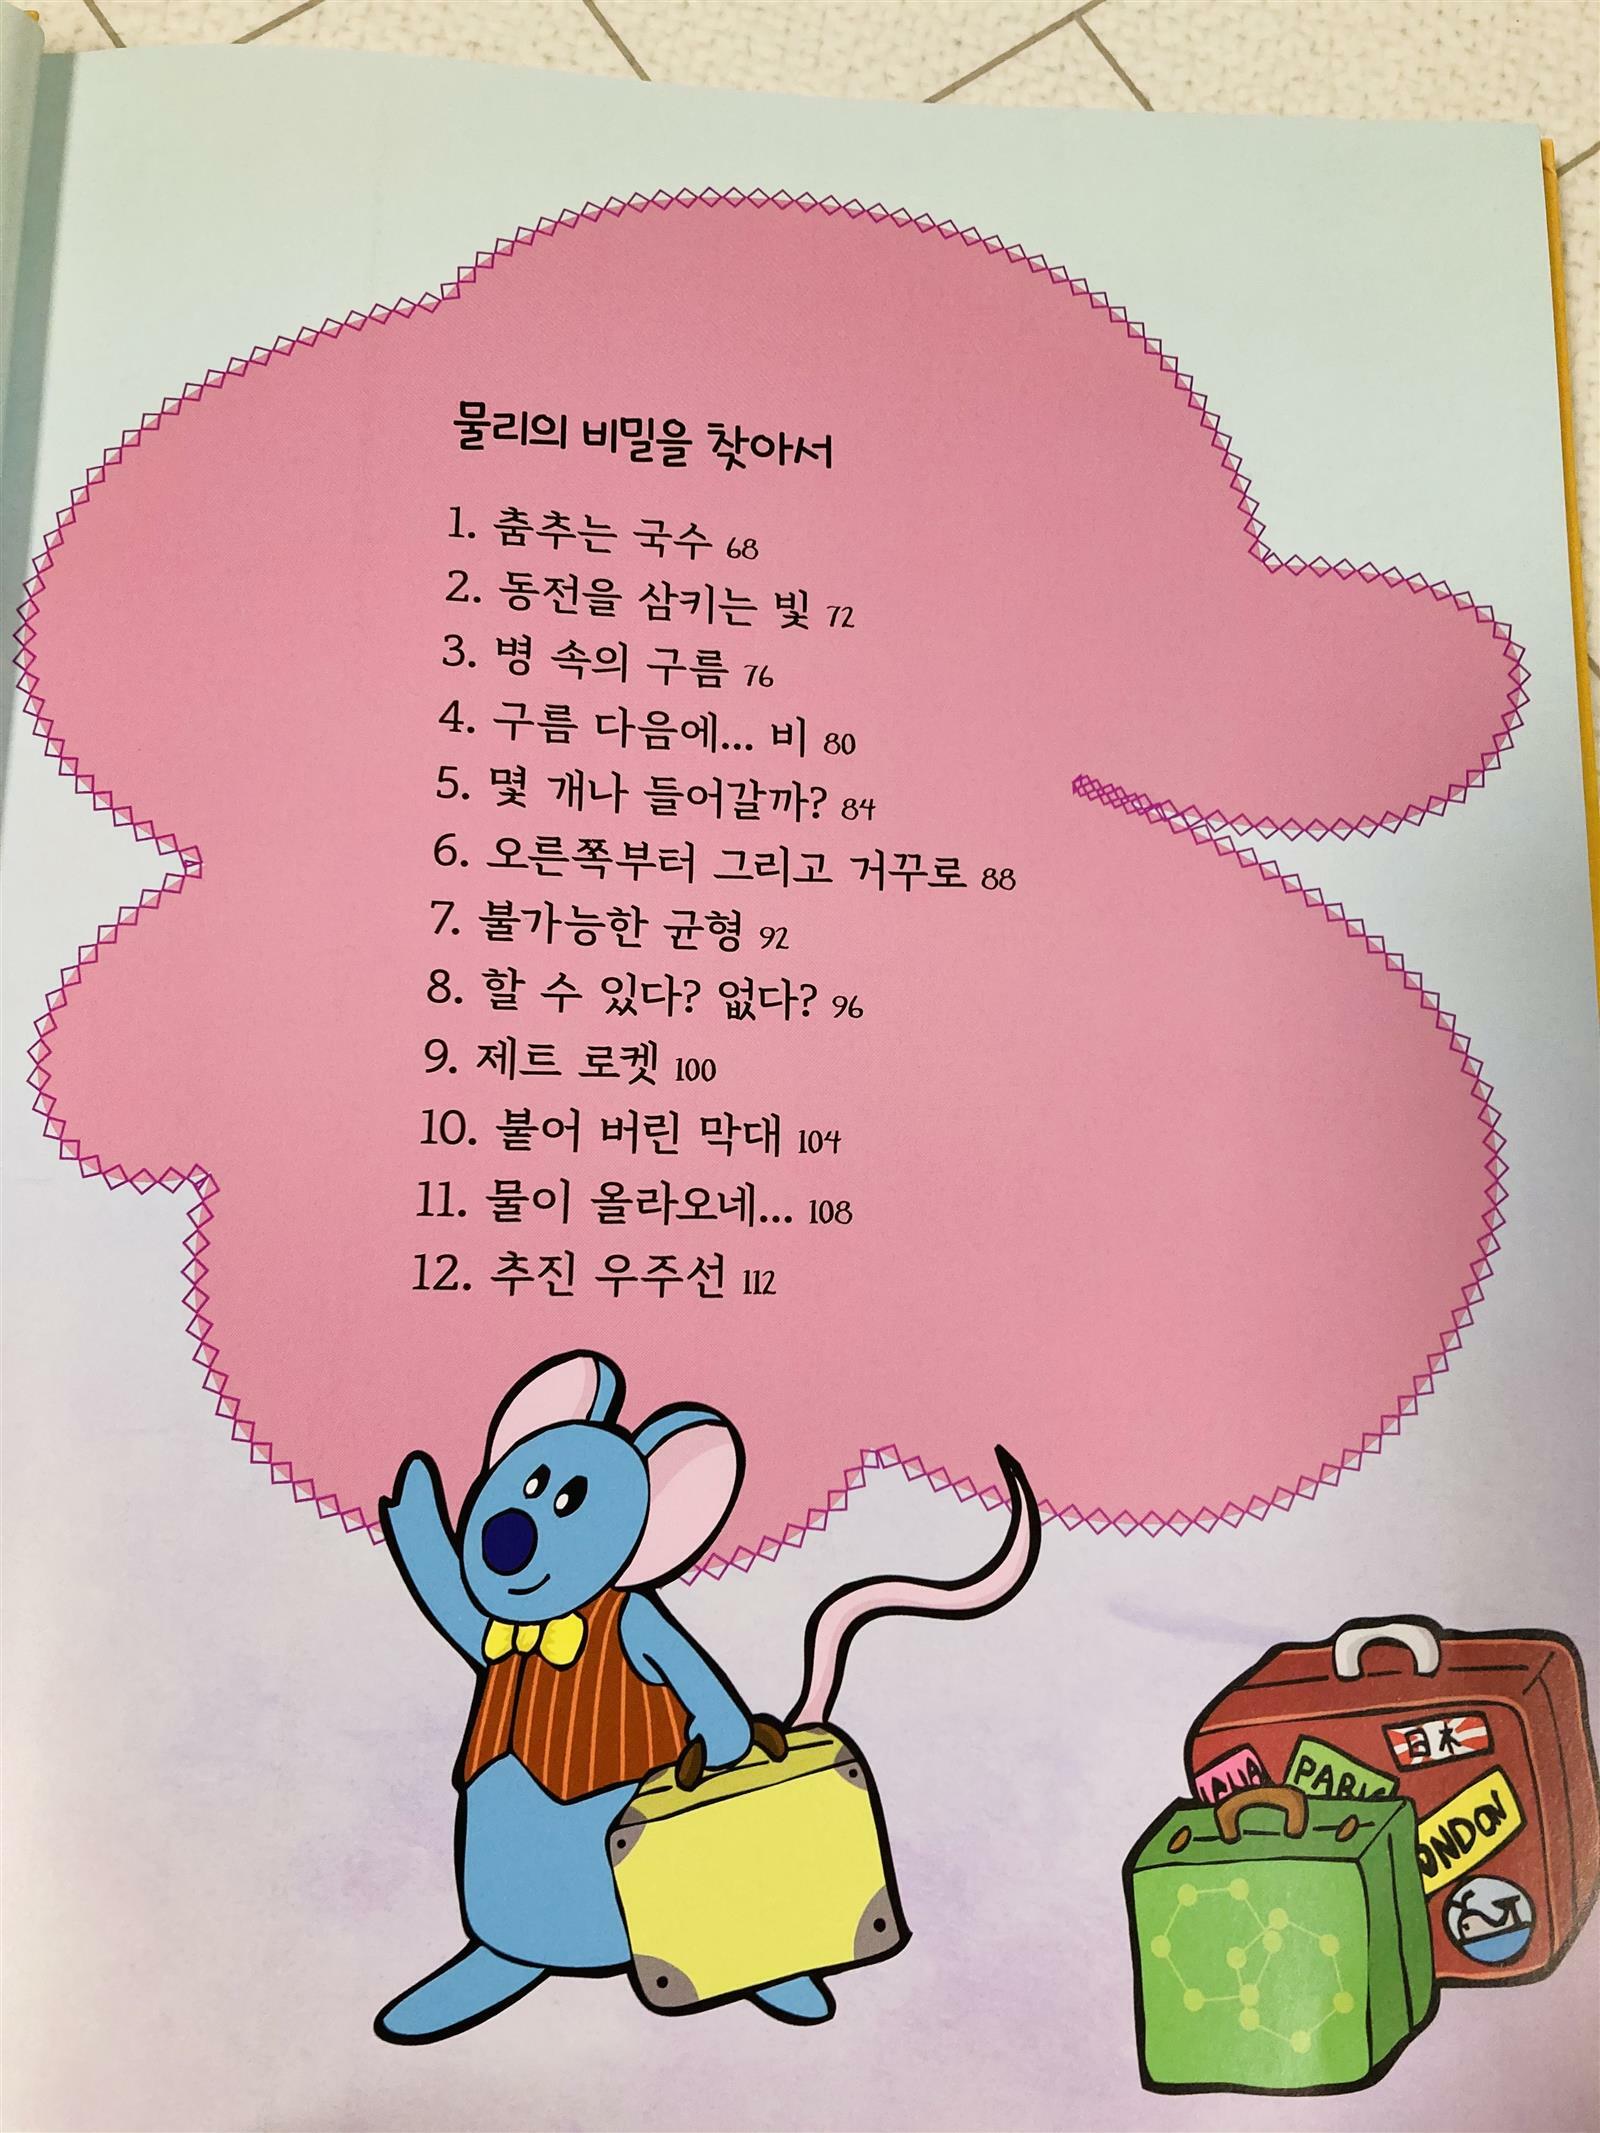 물리의 비밀을 찾아서
1. 춤추는 국수 68
2. 동전을 삼키는 빛 72
3. 병 속의 구름 76
4. 구름 다음에... 비 80
5. 몇 개나 들어갈까? 84
6. 오른쪽부터 그리고 거꾸로 88
7. 불가능한 균형 92
8. 할 수 있다? 없다? 96
9. 제트 로켓 100
10. 붙어 버린 막대 104
11. 물이 올라오네... 108
12. 추진 우주선 112
日本
PARIS
ONDON